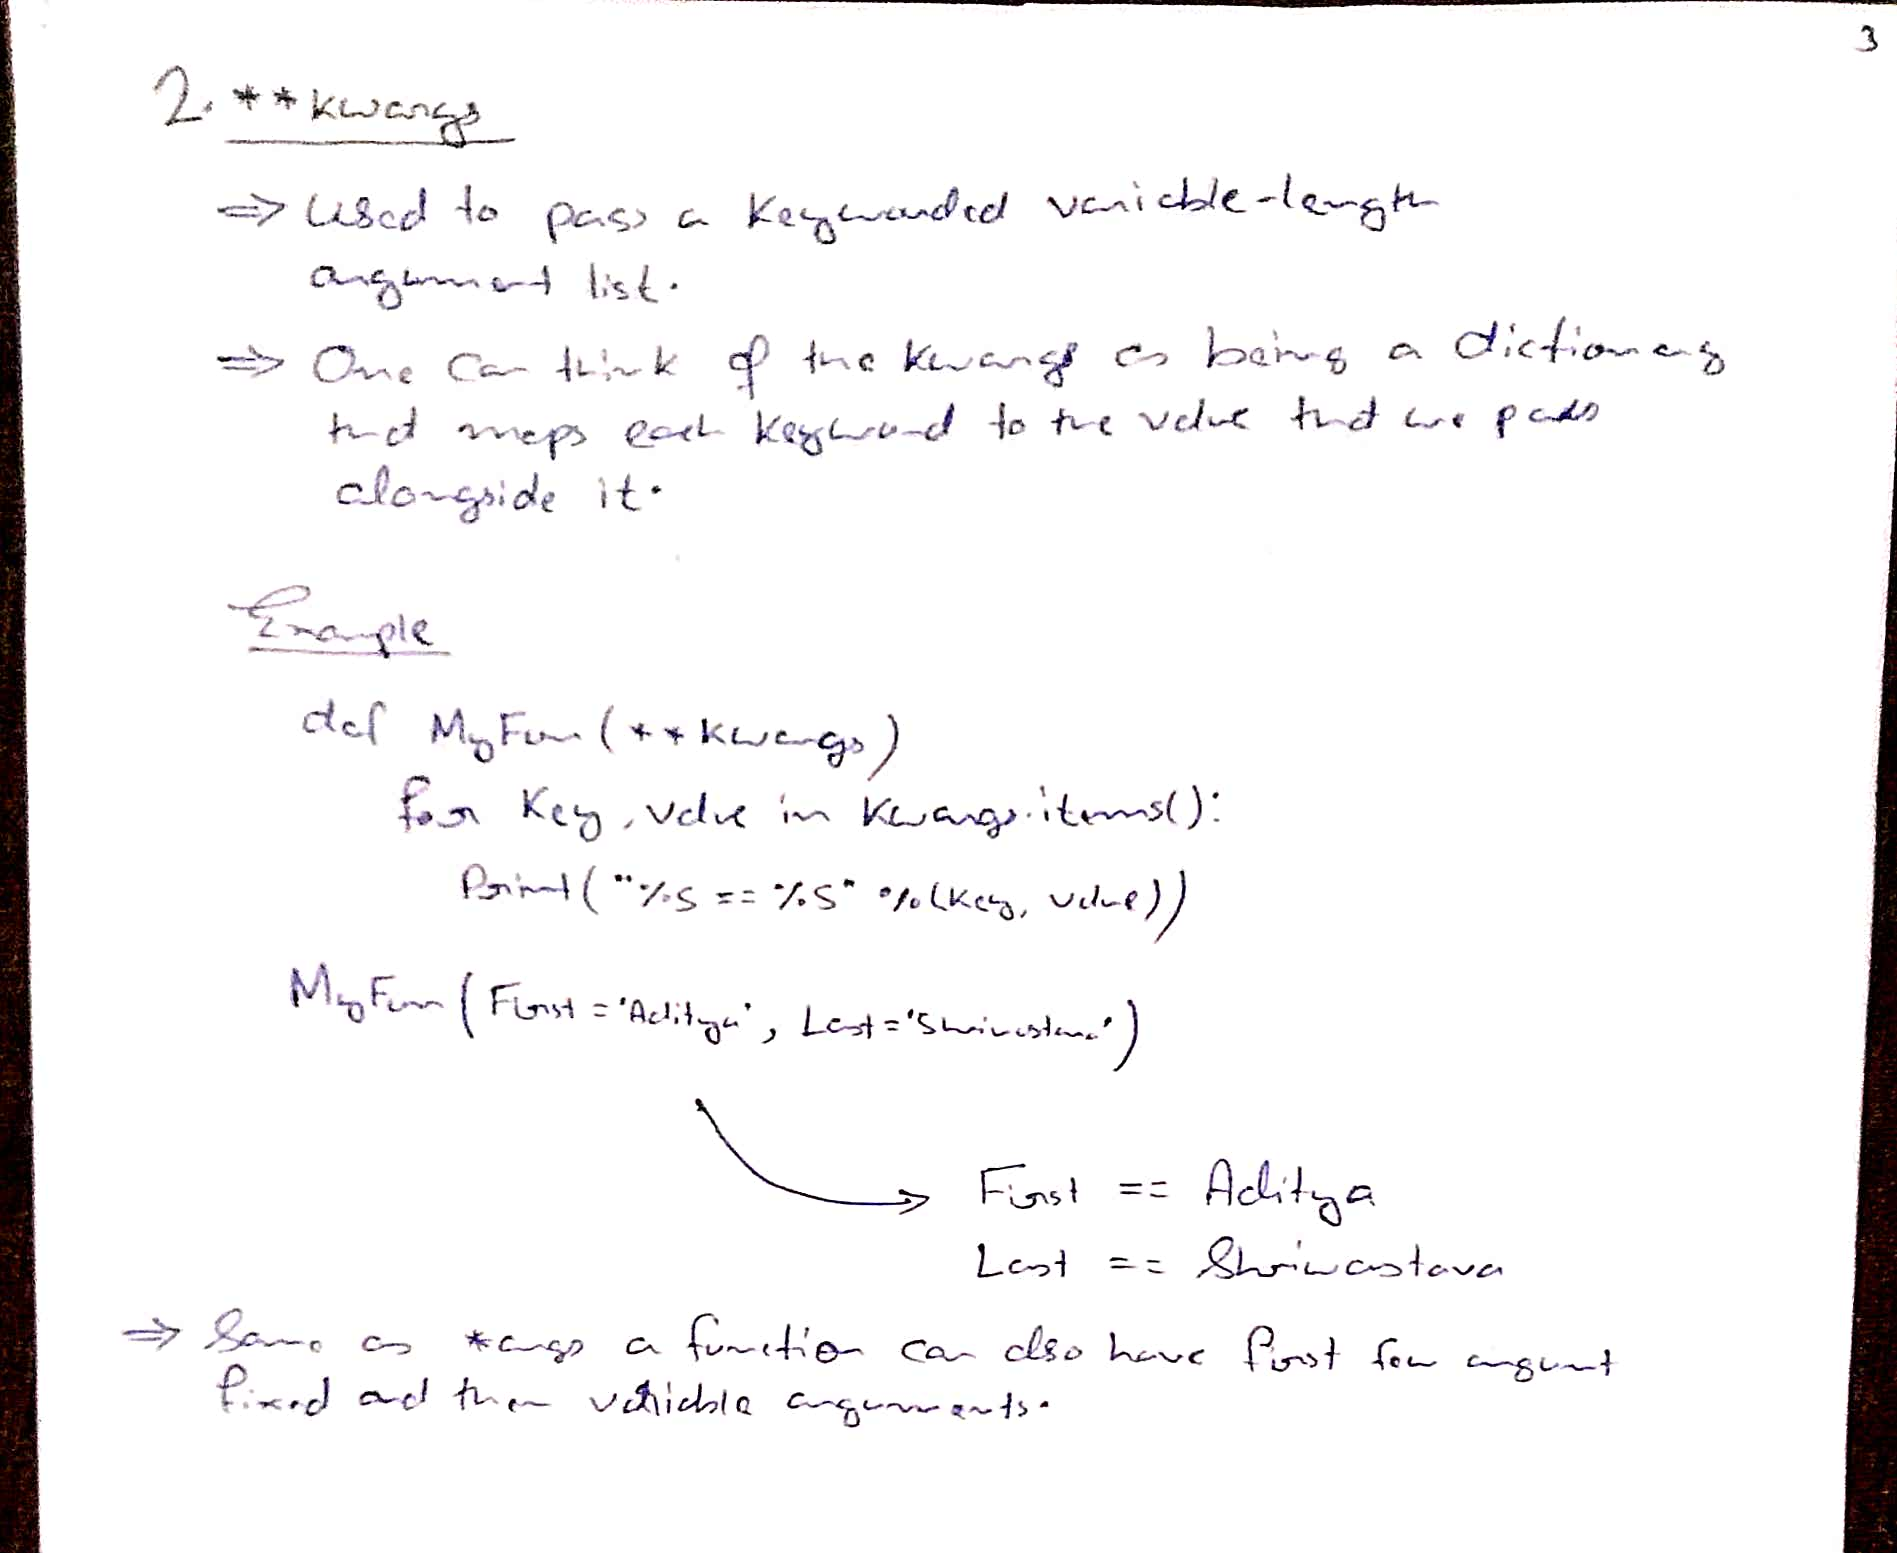 3
2. **kwargs
⇒ Used to pass a keyworded variable-length
argument list.
⇒ One can think of the kwargs as being a dictionary
that maps each keyword to the value that we pass
alongside it.
Example
def MyFun(**kwargs)
for key, value in kwargs.items():
Print("%s == %s" %(key, value))
MyFun(First='Aditya', Last='Shrivastava')
First == Aditya
Last == Shrivastava
⇒ Same as *args a function can also have first few argument
fixed and then variable arguments.